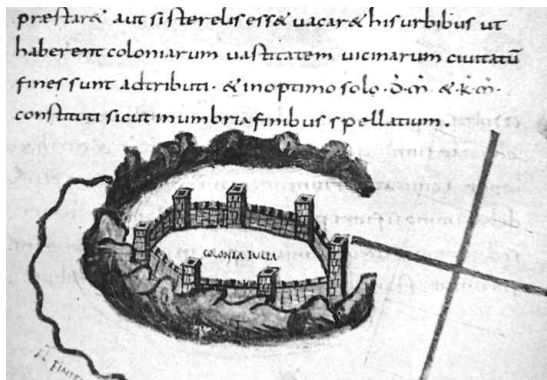 præstaræ aut si sterelis essæ uacaræ his urbibus ut
haberent coloniarum uastitatem uicinarum ciuitatū
fines sunt adtributi · & in optimo solo · D̄·M̄· & K̄·M̄·
constituti sicut in umbria finibus spellatium ·
COLONIA IULIA